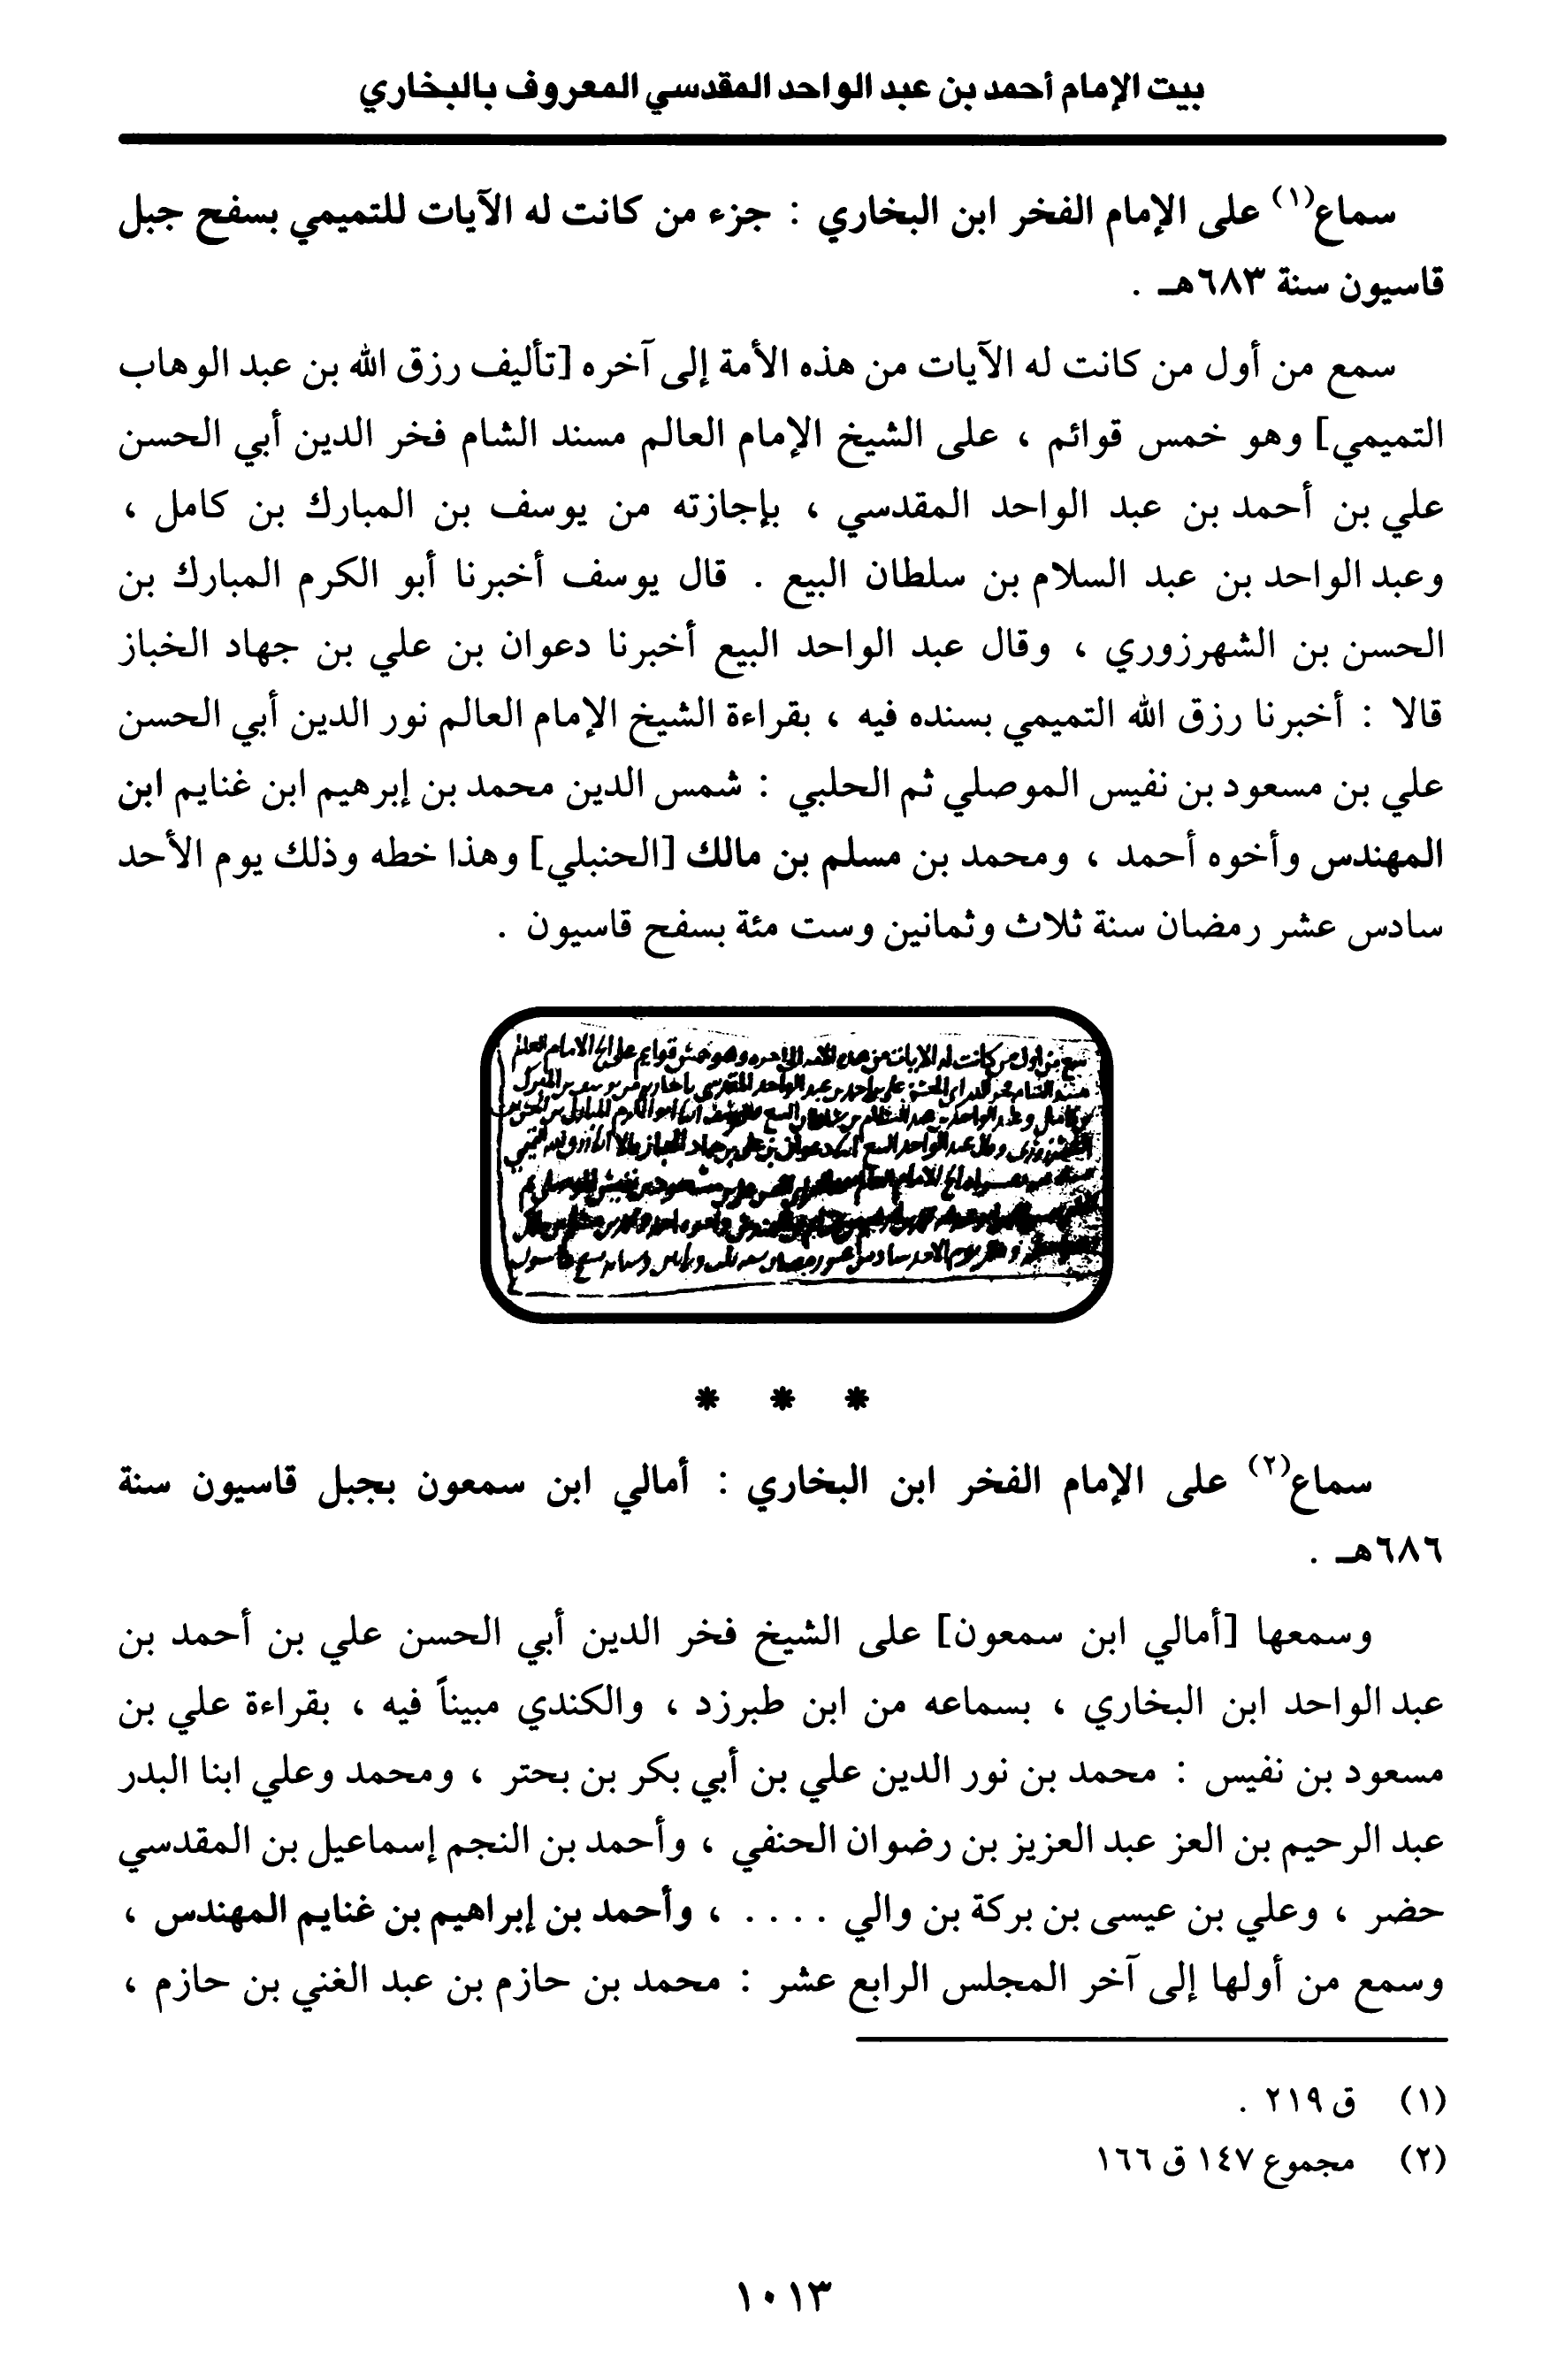 بيت الإمام أحمد بن عبد الواحد المقدسي المعروف بالبخاري
سماع(١) على الإمام الفخر ابن البخاري : جزء من كانت له الآيات للتميمي بسفح جبل
قاسيون سنة ٦٨٣هـ .
سمع من أول من كانت له الآيات من هذه الأمة إلى آخره [تأليف رزق الله بن عبد الوهاب
التميمي] وهو خمس قوائم ، على الشيخ الإمام العالم مسند الشام فخر الدين أبي الحسن
علي بن أحمد بن عبد الواحد المقدسي ، بإجازته من يوسف بن المبارك بن كامل ،
وعبد الواحد بن عبد السلام بن سلطان البيع . قال يوسف أخبرنا أبو الكرم المبارك بن
الحسن بن الشهرزوري ، وقال عبد الواحد البيع أخبرنا دعوان بن علي بن جهاد الخباز
قالا : أخبرنا رزق الله التميمي بسنده فيه ، بقراءة الشيخ الإمام العالم نور الدين أبي الحسن
علي بن مسعود بن نفيس الموصلي ثم الحلبي : شمس الدين محمد بن إبرهيم ابن غنايم ابن
المهندس وأخوه أحمد ، ومحمد بن مسلم بن مالك [الحنبلي] وهذا خطه وذلك يوم الأحد
سادس عشر رمضان سنة ثلاث وثمانين وست مئة بسفح قاسيون .
* * *
سماع(٢) على الإمام الفخر ابن البخاري : أمالي ابن سمعون بجبل قاسيون سنة
٦٨٦هـ .
وسمعها [أمالي ابن سمعون] على الشيخ فخر الدين أبي الحسن علي بن أحمد بن
عبد الواحد ابن البخاري ، بسماعه من ابن طبرزد ، والكندي مبيناً فيه ، بقراءة علي بن
مسعود بن نفيس : محمد بن نور الدين علي بن أبي بكر بن بحتر ، ومحمد وعلي ابنا البدر
عبد الرحيم بن العز عبد العزيز بن رضوان الحنفي ، وأحمد بن النجم إسماعيل بن المقدسي
حضر ، وعلي بن عيسى بن بركة بن والي . . . . ، وأحمد بن إبراهيم بن غنايم المهندس ،
وسمع من أولها إلى آخر المجلس الرابع عشر : محمد بن حازم بن عبد الغني بن حازم ،
(١) ق ٢١٩ .
(٢) مجموع ١٤٧ ق ١٦٦
١٠١٣